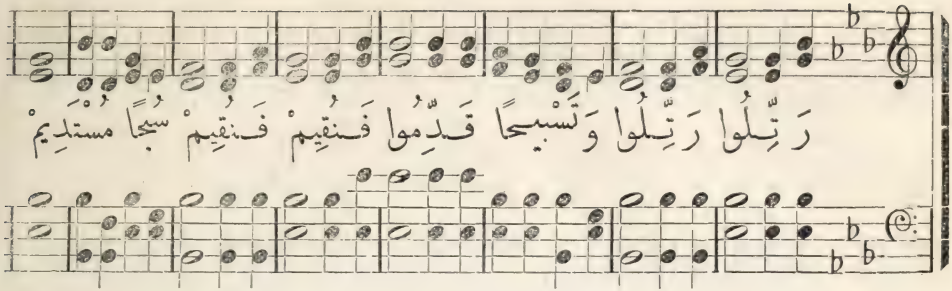 رَتِّلُوا رَتِّلُوا وَتَسْبِيحًا قَدِّمُوا فَنُقِيمْ فَنُقِيمْ سُبْحًا مُسْتَدِيمْ